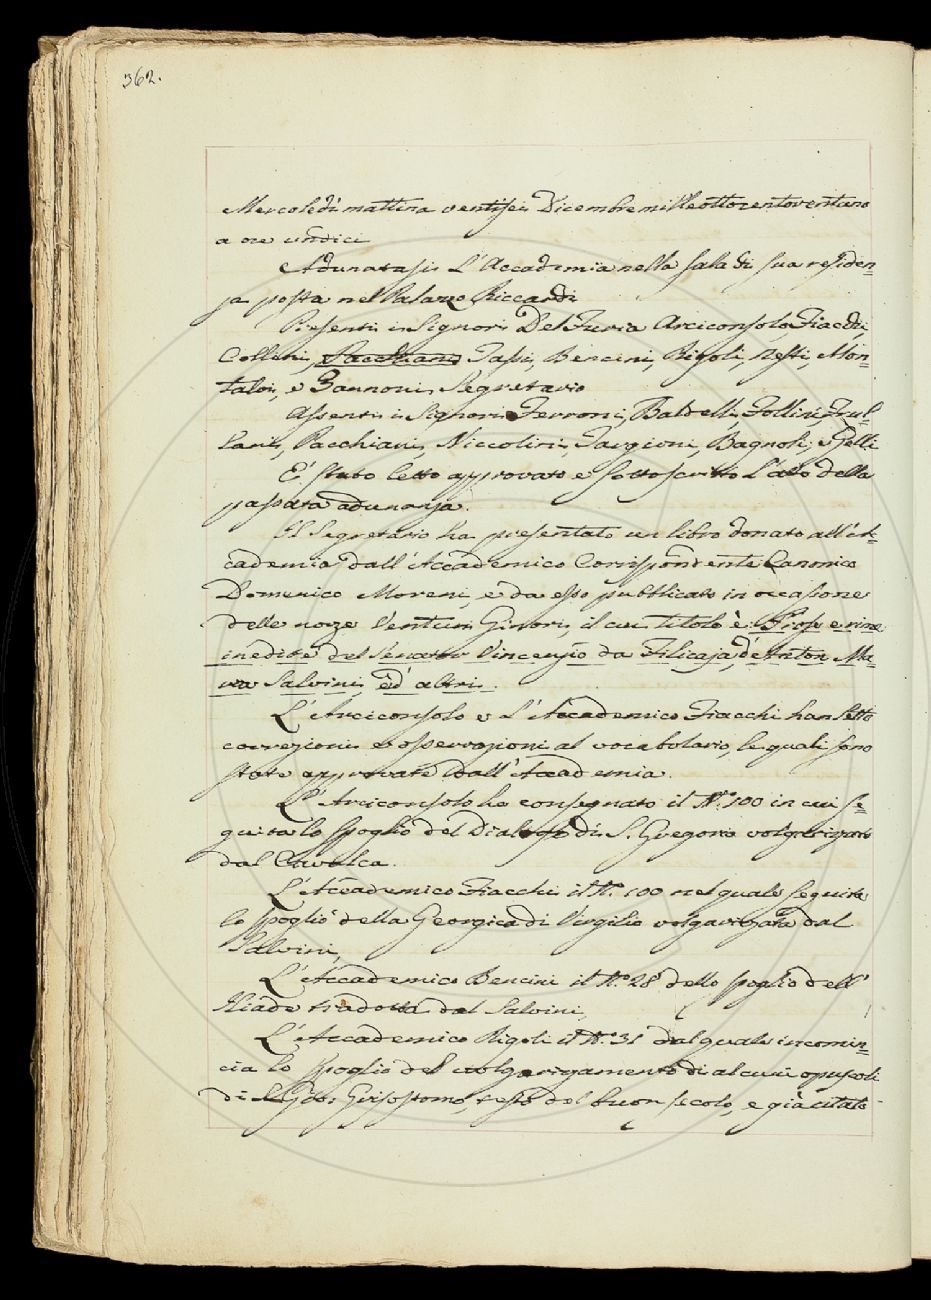 362.
Mercoledì mattina ventisei Dicembre milleottocentoventuno
a ore undici
Adunatasi L'Accademia nella sala di sua residen=
za posta nel Palazzo Riccardi
Presenti i Signori Del Furia Arciconsolo, Fiacchi,
Collini, Sacchiani Tassi, Bencini, Rigoli, Nesti, Mon=
talvi, e Zannoni Segretario
Assenti i Signori Ferroni, Baldelli, Follini, Frul=
lani, Pacchiani, Niccolini, Targioni, Bagnoli, e Gelli
E' stato letto approvato e sottoscritto L'atto della
passata adunanza.
Il Segretario ha presentato un libro donato all'Ac=
cademia dall'Accademico Corrispondente Canonico
Domenico Moreni, e da esso pubblicato in occasione
delle nozze Venturi Ginori, il cui titolo è: Prose e rime
inedite del Senatore Vincenzio da Filicaja, d'Anton Ma=
ria Salvini, ed altri.
L'Arciconsolo e L'Accademico Fiacchi han letto
correzioni e osservazioni al vocabolario, le quali sono
state approvate dall'Accademia.
L'Arciconsolo ha consegnato il N.º 100 in cui se=
guita lo spoglio del Dialogo di S. Gregorio volgarizzato
dal Cavalca.
L'Accademico Fiacchi il N.º 100 nel quale seguita
lo spoglio della Georgica di Virgilio volgarizzata dal
Salvini,
L'Accademico Bencini il N.º 28 dello spoglio dell'
Iliade tradotta dal Salvini,
L'Accademico Rigoli il N.º 31 dal quale incomin=
cia lo spoglio del volgarizzamento di alcuni opuscoli
di S. Gio: Grisostomo, testo del buon secolo, e già citato